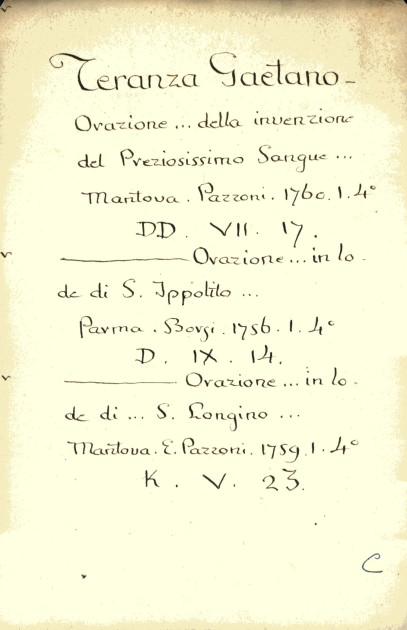 Teranza Gaetano-
Orazione ... della invenzione
del Preziosissimo Sangue ...
Mantova. Pazzoni. 1760. 1. 4°
DD. VII. 17.
——— Orazione ... in lo-
de di S. Ippolito ...
Parma. Borsi. 1756. 1. 4°
D. IX. 14.
——— Orazione ... in lo-
de di ... S. Longino ...
Mantova. E. Pazzoni. 1759. 1. 4°
K. V. 23.
C